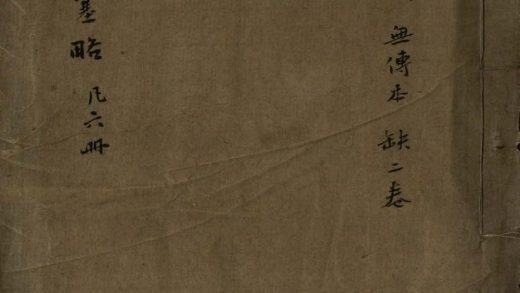 無傳本 缺二卷
墓略 凡六冊